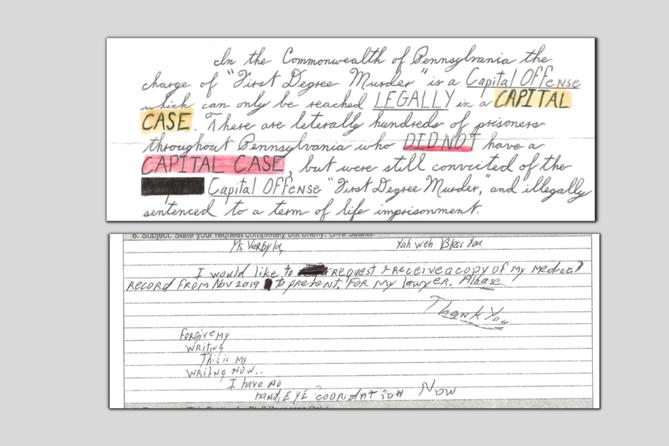 In the Commonwealth of Pennsylvania the
charge of "First Degree Murder" is a Capital Offense
which can only be reached LEGALLY in a CAPITAL
CASE. There are leterally hundreds of prisoners
throughout Pennsylvania who DID NOT have a
CAPITAL CASE, but were still convicted of the
Capital Offense "First Degree Murder," and illegally
sentenced to a term of life imprisonment.
6. Subject: State your request completely but briefly. Give details.
Ms Verbyla, Yahweh Bless You
I would like to request & receive a copy of my medical
RECORD FROM NOV 2019 to present. FOR my lawyer. Please
Thank You
Forgive my
writing
This is my
writing now..
I have no
hand, EYE coordnation Now